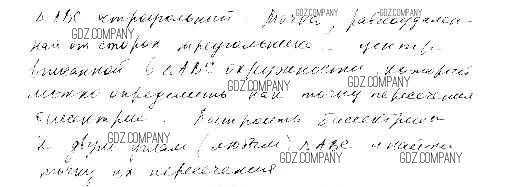 Δ ABC остроугольный. Точка, равноудален-
ная от сторон треугольника - центр
вписанной в ΔABC окружности, который
можно определить как точку пересечения
биссектрис. Построить биссектрисы
к двум углам (любым) ΔABC и найти
точку их пересечения
GDZ.COMPANY
GDZ.COMPANY
GDZ.COMPANY
GDZ.COMPANY
GDZ.COMPANY
GDZ.COMPANY
GDZ.COMPANY
GDZ.COMPANY